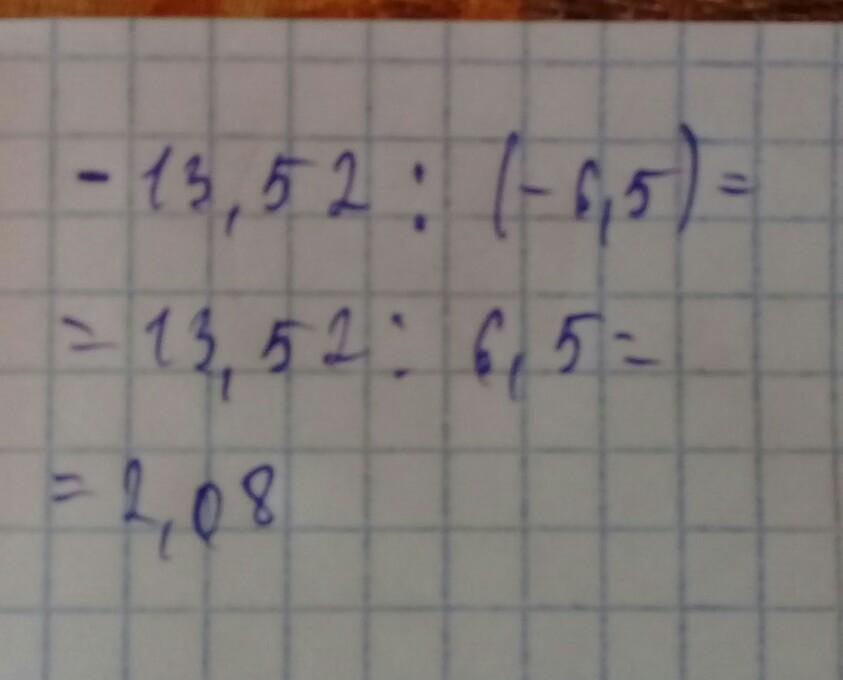 - 13,52 : (- 6,5) =
= 13,52 : 6,5 =
= 2,08